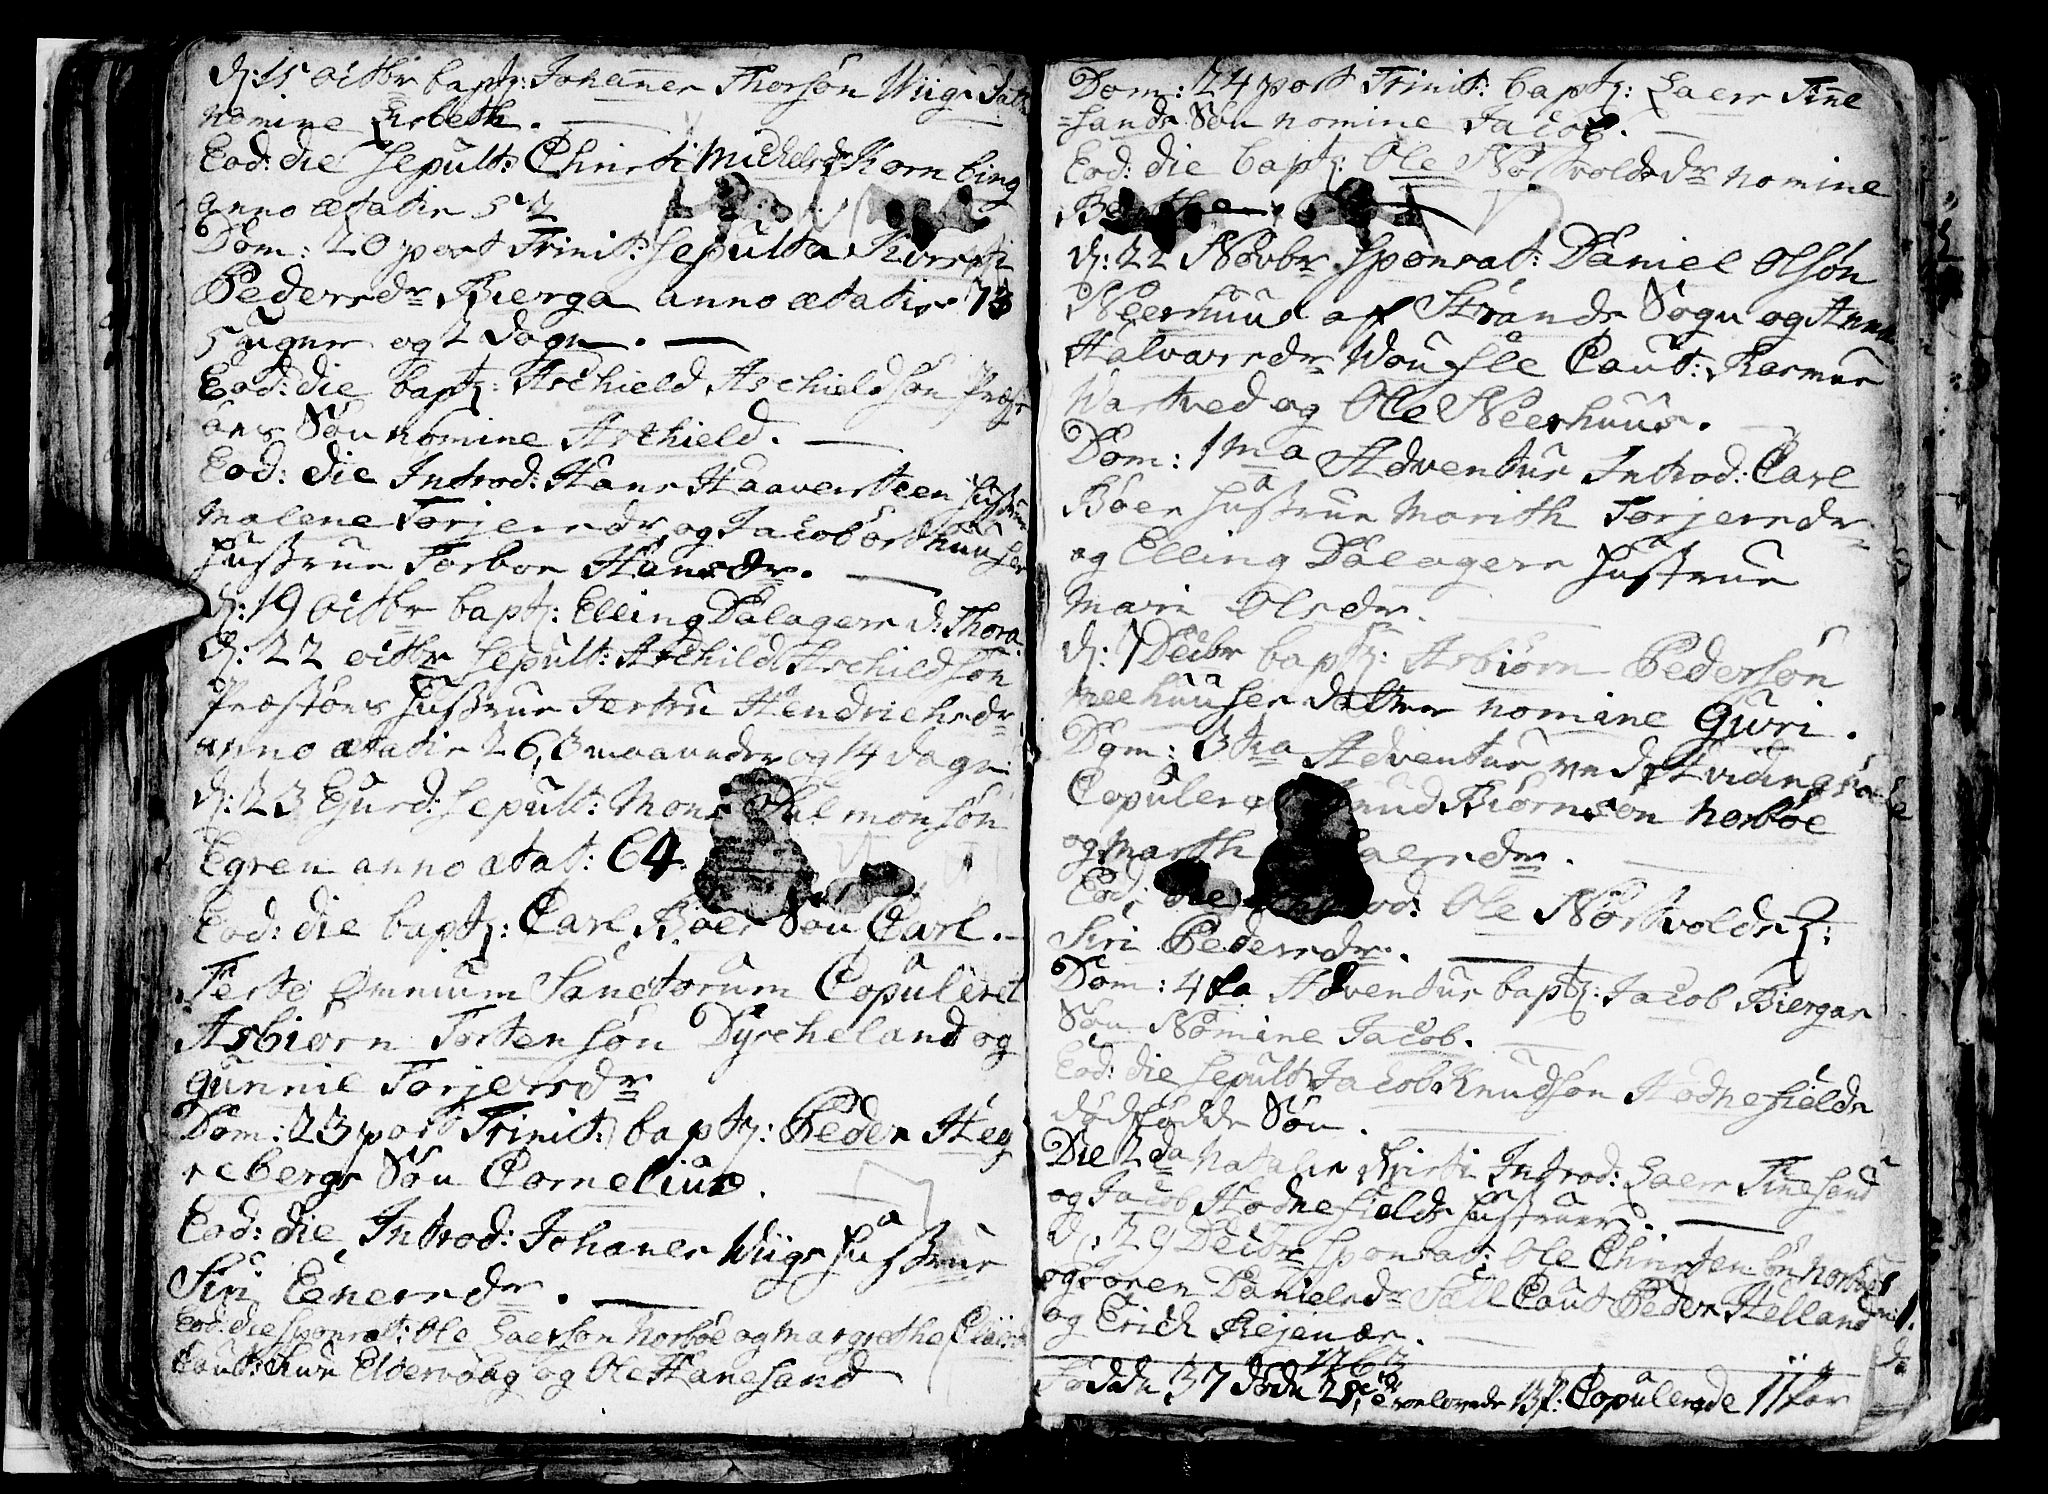 d: 15 octbr bapt: Johannes Thorsøn Wiigs Datt
nomine Lisbeth.
Eod: die sepult: Christi Michelsdr Kornbing
anno ætatis 52
Dom: 20 post Trinit: sepulta Kirsti
Pedersdr Bierga anno ætatis 73
5 uger og 2 dage.
Eod: die bapt: Aschield Aschieldsøn Præst
øns Søn nomine Aschield.
Eod: die Introd: Hans Haaversteen Hustrue
Malene Torjersdr og Jacob
Hustrue Torbor Hansdr.
d: 19 octbr bapt: Elling Dalagers d: Thora
d: 22 octbr sepult: Aschild Aschieldsøn
Præstøns Hustrue Jertru Hendrichsdr
anno ætatis 26, 3 maaneder og 14 dage
d: 23 Ejusd: sepult: Mons Salmonsøn
Egren anno ætat: 64.
Eod: die bapt: Carl Bøes Søn Carl.
Festo Omnium Sanctorum Copuleret
Asbiørn Tostensøn Dyrcheland og
Gunnie Torjersdr
Dom: 23 post Trinit: bapt: Peder Heg
rebergs Søn Cornelius.
Eod: die Introd: Johanes Wiigs Hustrue
Siri Enersdr.
Eod: die sponsat: Ole Laersøn Norbøe og Margrethe
Caut: Eldervaag og Ole Hanesand
Dom: 24 post Trinit: bapt: Laers Fine
=sands Søn nomine Jacob.
Eod: die bapt: Ole Nøstvolds dr nomine
d: 22 Novbr sponsat: Daniel Olsøn
Neerhuus af Strands Sogn og Anna
Halvorsdr Caut: Rasmus
Wastved og Ole Neerhuus.
Dom: 1ma Adventus Introd: Carl
Bøes Hustrue Marith Torjersdr
og Elling Dalagers Hustrue
Mari Olsdr.
d: 7 Decbr bapt: Asbiørn Pedersøn
Meehuuses datter nomine Guri.
Dom: 3tia Adventus ved Hvidingsøe
Copuleret Knud Biørnsøn Norbøe
og Marth Laersdr.
Eod: die Introd: Ole Nøstvolds H:
Siri Pedersdr.
Dom: 4ta Adventus bapt: Jacob Biergas
Søn Nomine Jacob.
Eod: die sepult: Jacob Knudsøn Hodnefields
dødfødde Søn.
Die 2da Natalis Christi Introd: Laers Finesand
og Jacob Hodnefields Hustruer.
d: 29 Decbr sponsat: Ole Christensøn Norbøe
og Daniels dr Caut: Peder Helland
og Erich Rejenær.
1763
Fødde 37 døde 25, trolovede 13 p: Copulerede 11 par